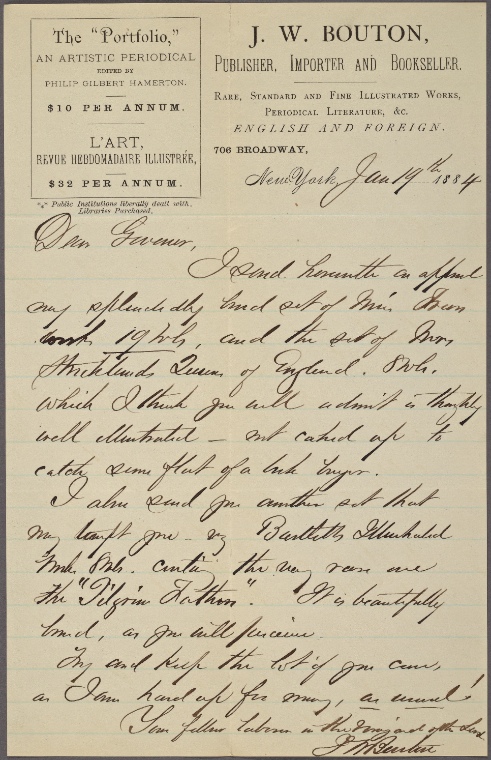 The "Portfolio,"
AN ARTISTIC PERIODICAL
EDITED BY
PHILIP GILBERT HAMERTON.
$10 PER ANNUM.
L'ART,
REVUE HEBDOMADAIRE ILLUSTRÉE,
$32 PER ANNUM.
*** Public Institutions liberally dealt with,
Libraries Purchased.
J. W. BOUTON,
PUBLISHER, IMPORTER AND BOOKSELLER.
RARE, STANDARD AND FINE ILLUSTRATED WORKS,
PERIODICAL LITERATURE, &C.
ENGLISH AND FOREIGN.
706 BROADWAY,
New York, Jan 19th 1884
Dear Governor,
I send herewith on approval
my splendidly bound set of Miss
works 19 vols, and the set of Miss
Stricklands Queens of England. 8 vols.
which I think you will admit is thoroughly
well illustrated — not caked up to
catch some flat of a book buyer.
I also send you another set that
may tempt you - viz Bartletts Illustrated
Works. 8 vols. containing the very rare one
the "Pilgrim Fathers". It is beautifully
bound, as you will perceive.
Try and keep the lot if you can,
as I am hard up for money, as usual!
Your fellow laborer in the Vineyard of the Lord
J W Bouton